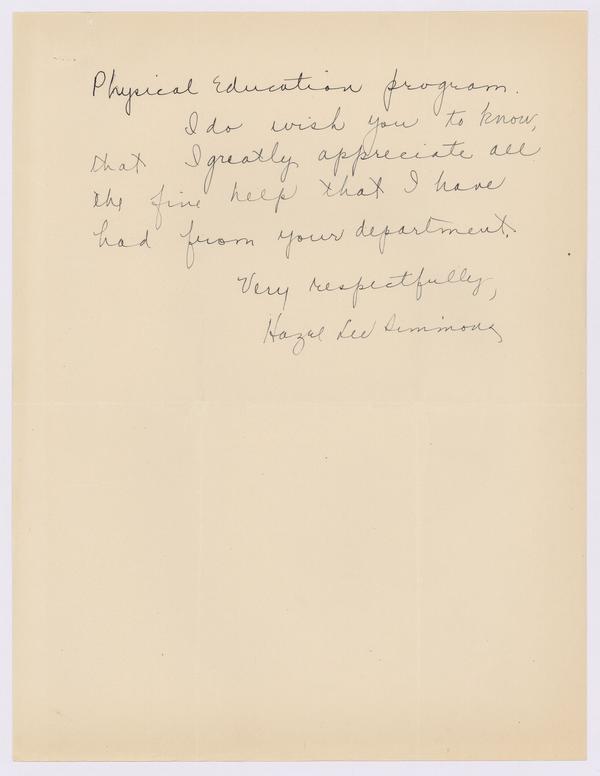 Physical Education program.
I do wish you to know,
that I greatly appreciate all
the fine help that I have
had from your department.
Very respectfully,
Hazel Lee Simmons